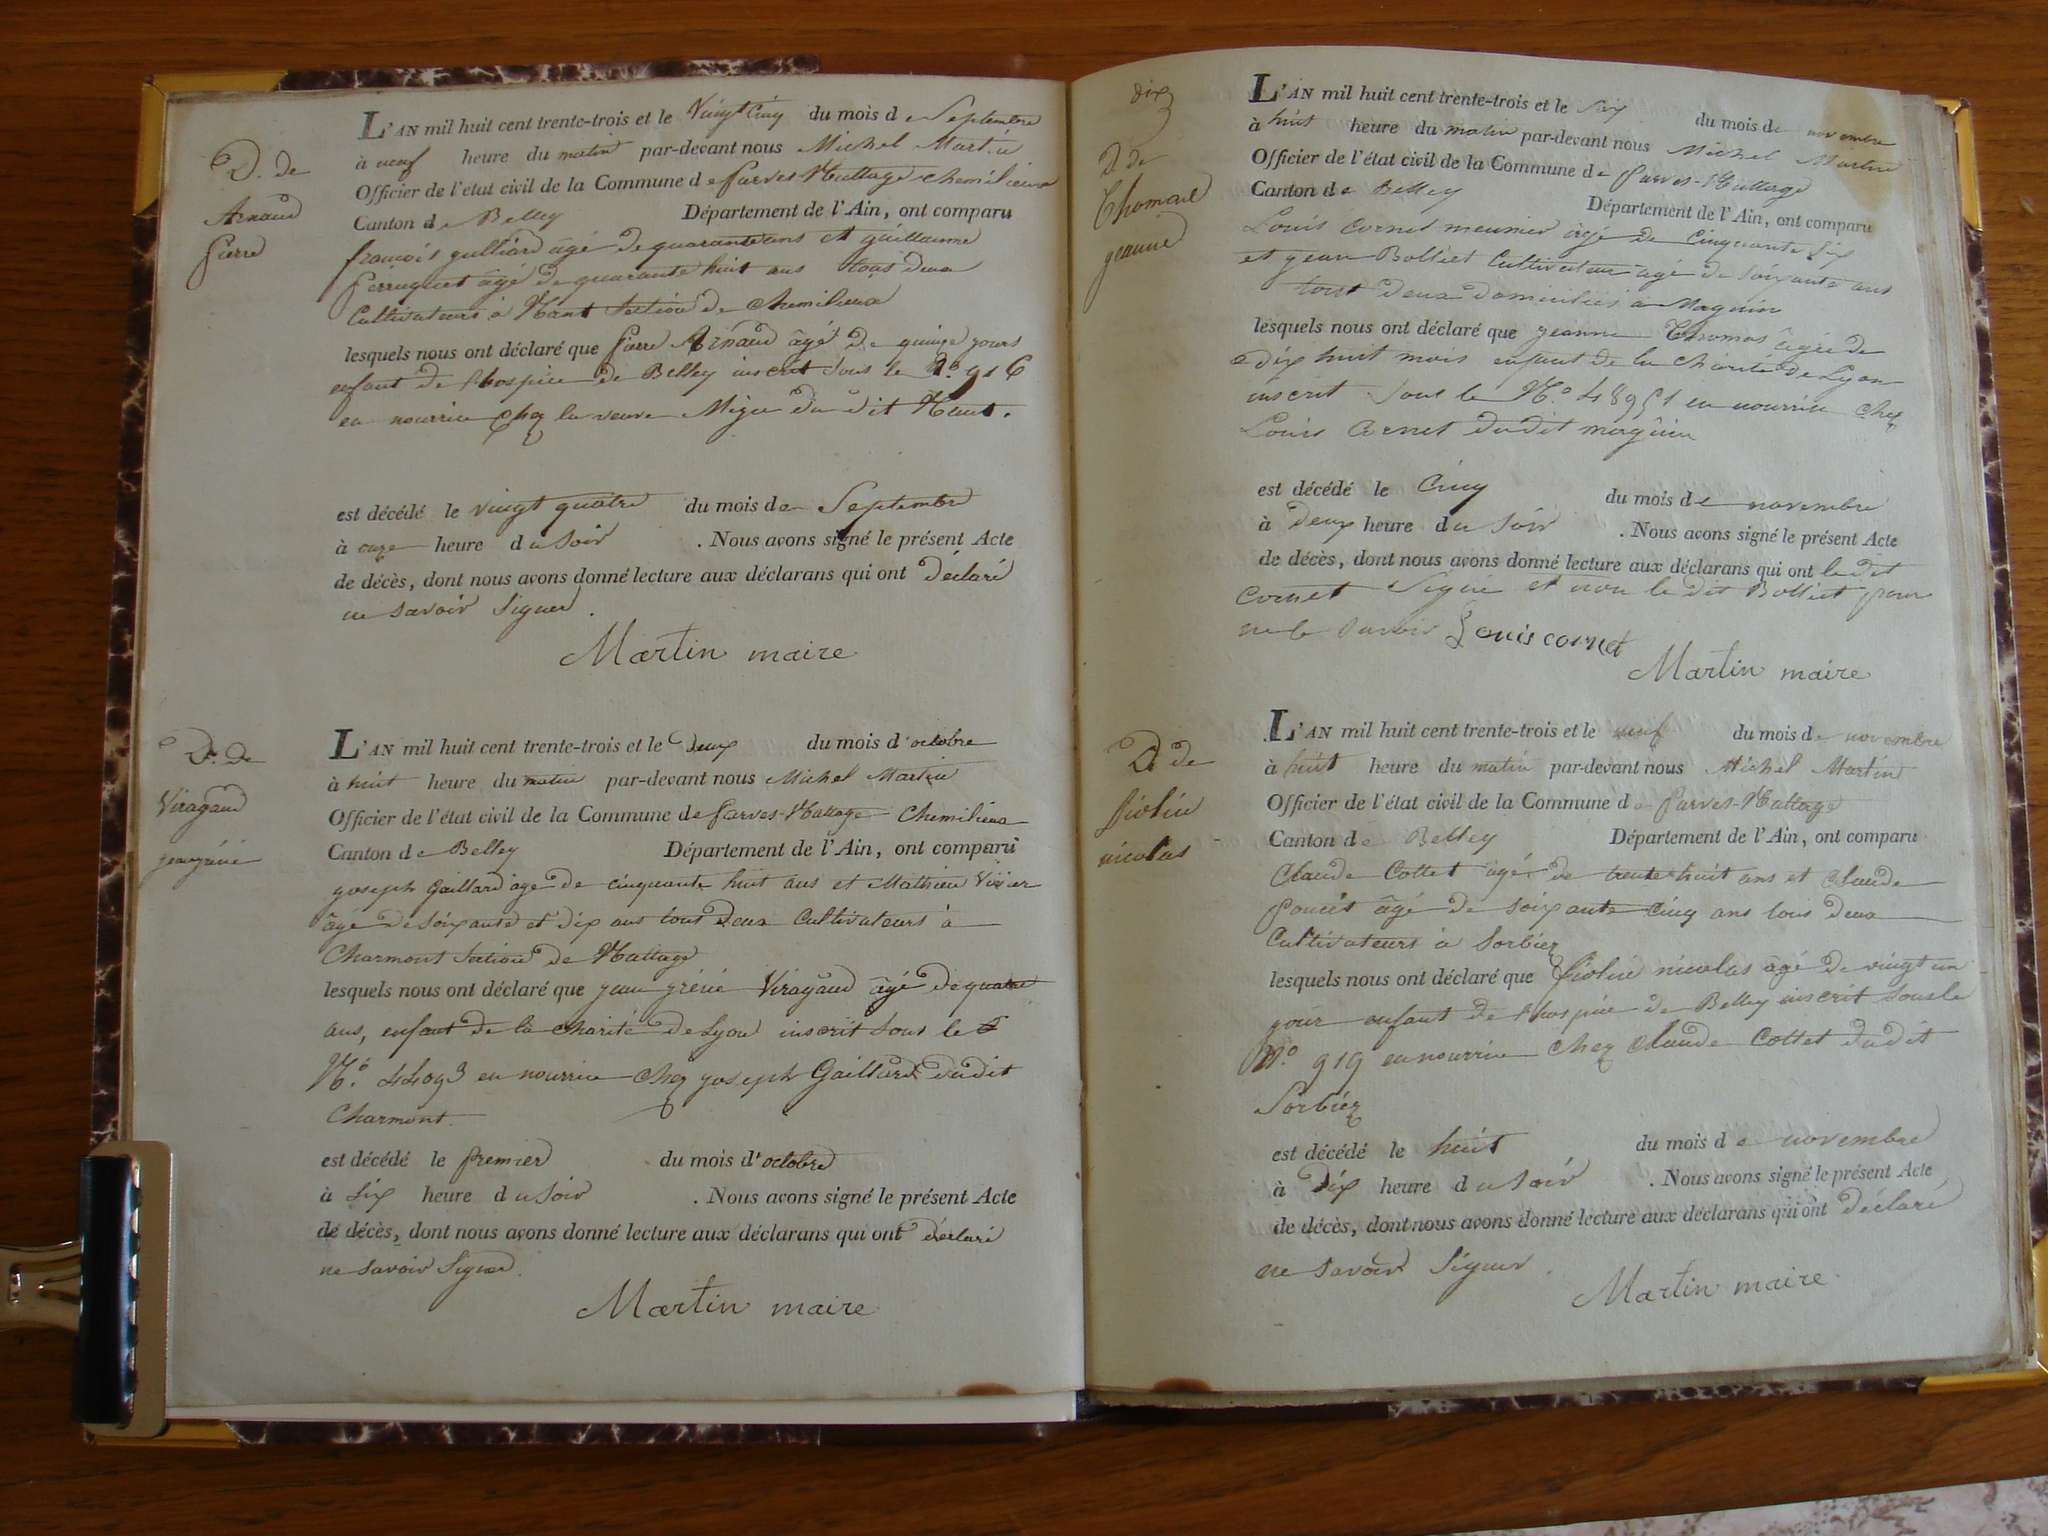 D. de
Arnaud
pierre
L'AN mil huit cent trente-trois et le Vingt Cinq du mois de Septembre
à neuf heure du matin par-devant nous Michel Martin
Officier de l'état civil de la Commune de parves-Nattage chemilieux
Canton de Belley Département de l'Ain, ont comparu
francois gulliard âgé de quarante ans et guillaume
perruquet âgé de quarante huit ans tous deux
Cultivateurs à Nant Section de Chemilieux
lesquels nous ont déclaré que pierre Arnaud âgé de quinze jours
enfant de l'hospice de Belley inscrit sous le N.º 916
en nourrice chez la veuve du dit Nant.
est décédé le vingt quatre du mois de Septembre
à onze heure du soir . Nous avons signé le présent Acte
de décès, dont nous avons donné lecture aux déclarans qui ont déclaré
ne savoir signer.
Martin maire
D. de
Viragaud
jean
L'AN mil huit cent trente-trois et le deux du mois d'octobre
à huit heure du matin par-devant nous Michel Martin
Officier de l'état civil de la Commune de parves-Nattage Chemilieux
Canton de Belley Département de l'Ain, ont comparu
joseph Gaillard age de cinquante huit ans et Mathieu
âgé de soixante et dix ans tous deux cultivateurs à
Charmont section de Nattage
lesquels nous ont déclaré que jean Viragaud âgé de quatre
ans, enfant de la charité de Lyon inscrit sous le
N.º 44093 en nourrice chez joseph Gaillard dudit
Charmont.
est décédé le premier du mois d'octobre
à six heure du soir . Nous avons signé le présent Acte
de décès, dont nous avons donné lecture aux déclarans qui ont déclaré
ne savoir signer.
Martin maire
dix
D. de
Thomas
jeanne
L'AN mil huit cent trente-trois et le six du mois de novembre
à huit heure du matin par-devant nous Michel Martin
Officier de l'état civil de la Commune de parves-Nattage
Canton de Belley Département de l'Ain, ont comparu
Louis Cornet meunier âgé de cinquante six
et jean Bolliet Cultivateur âgé de soixante ans
tout deux domiciliés à
lesquels nous ont déclaré que jeanne Thomas âgée de
dix huit mois enfant de la charité de Lyon
inscrit sous le N.º 48951 en nourrice chez
Louis Cornet dudit
est décédé le Cinq du mois de novembre
à deux heure du soir . Nous avons signé le présent Acte
de décès, dont nous avons donné lecture aux déclarans qui ont le dit
cornet signé et non le dit Bolliet pour
ne le savoir Louis cornet
Martin maire
D. de
piolin
nicolas
L'AN mil huit cent trente-trois et le neuf du mois de novembre
à huit heure du matin par-devant nous Michel Martin
Officier de l'état civil de la Commune de parves-Nattage
Canton de Belley Département de l'Ain, ont comparu
Claude Cottet âgé de trente huit ans et Claude
poncet âgé de soixante cinq ans tous deux
Cultivateurs à Sorbiez
lesquels nous ont déclaré que piolin nicolas âgé de vingt un
jour enfant de l'hospice de Belley inscrit sous le
N.º 919 en nourrice chez Claude Cottet dudit
Sorbiez
est décédé le huit du mois de novembre
à dix heure du soir . Nous avons signé le présent Acte
de décès, dont nous avons donné lecture aux déclarans qui ont déclaré
ne savoir signer.
Martin maire